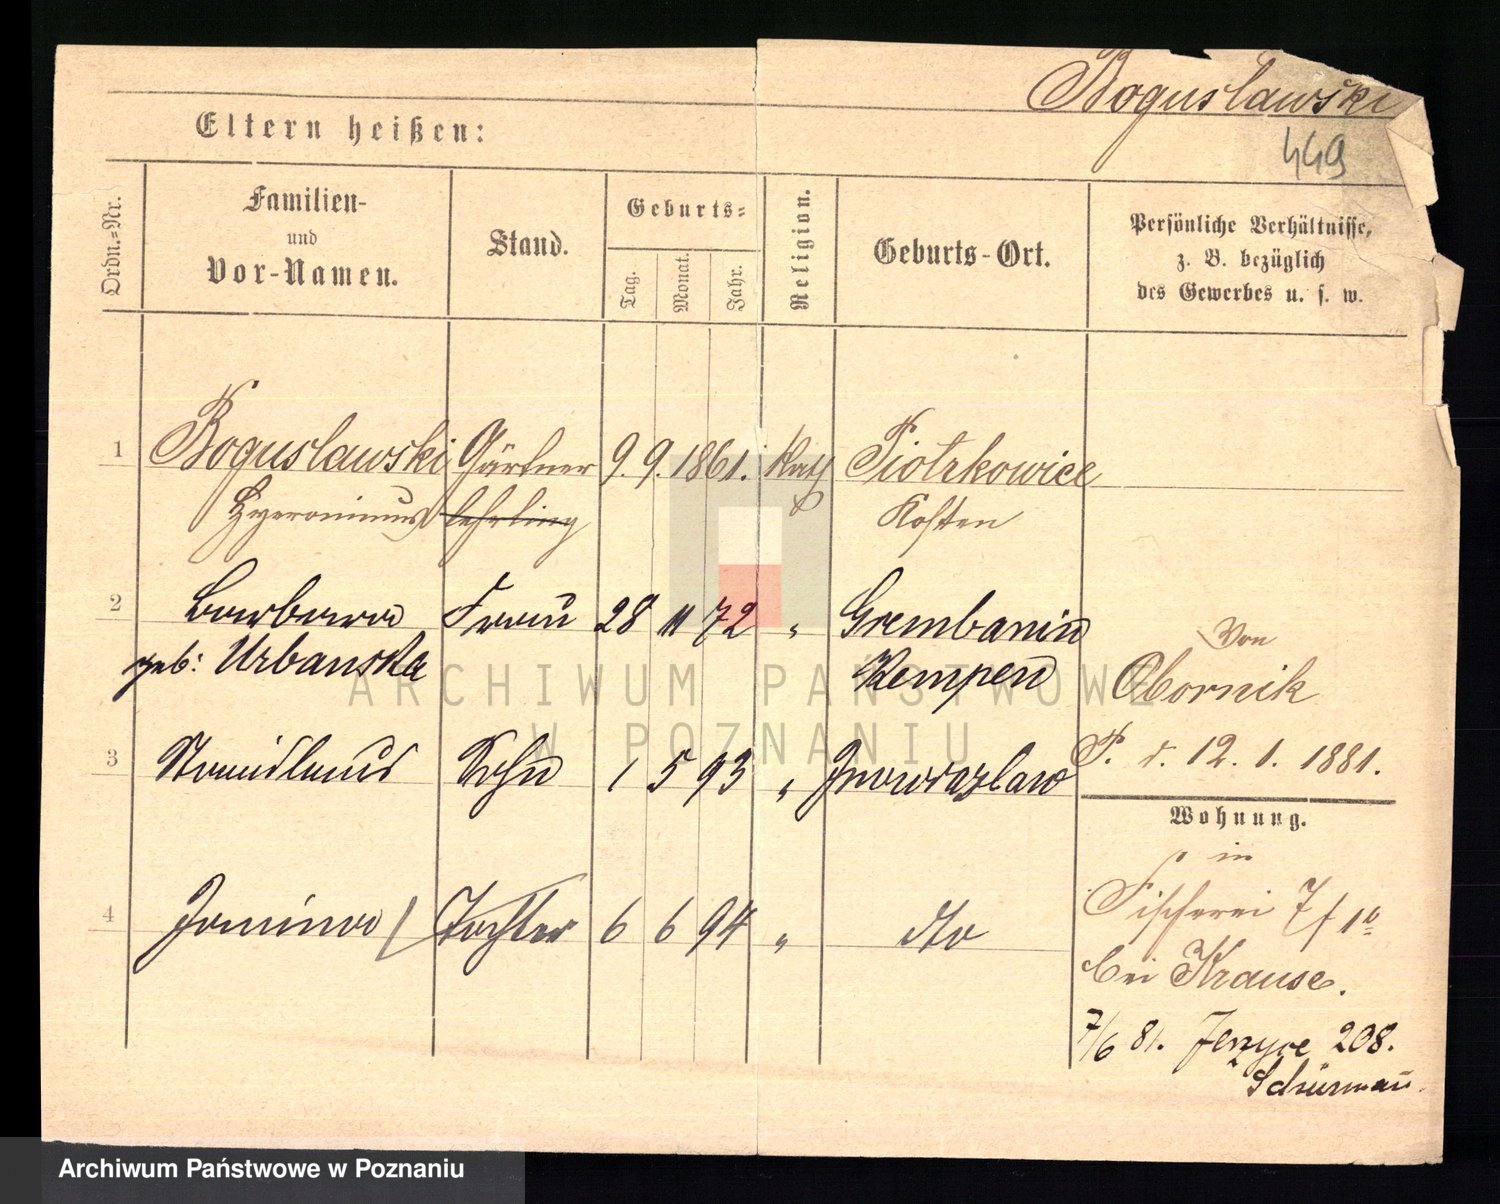 Boguslawski
449
Eltern heißen:
Ordn.=Nr.
Familien-
und
Vor-Namen.
Stand.
Geburts=
Tag.
Monat.
Jahr.
Religion.
Geburts-Ort.
Persönliche Verhältnisse,
z. B. bezüglich
des Gewerbes u. s. w.
1 Boguslawski Gärtner 9. 9. 1861. Kath Piotrkowice
Hyeronimus lehrling Kosten
2 Barbara Frau 28 11 72 " Grembanin
geb: Urbanska Kempen
Von
Obornik
P. v. 12. 1. 1881.
3 Stanislaus Sohn 1 5 93 " Inowrazlaw
Wohnung.
in
Fischerei 7/10
bei Krause.
4 Janina Tochter 6 6 94 " dto
7/6 81. Jerzyce 208.
Schürmann
ARCHIWUM PAŃSTWOWE
W POZNANIU
Archiwum Państwowe w Poznaniu